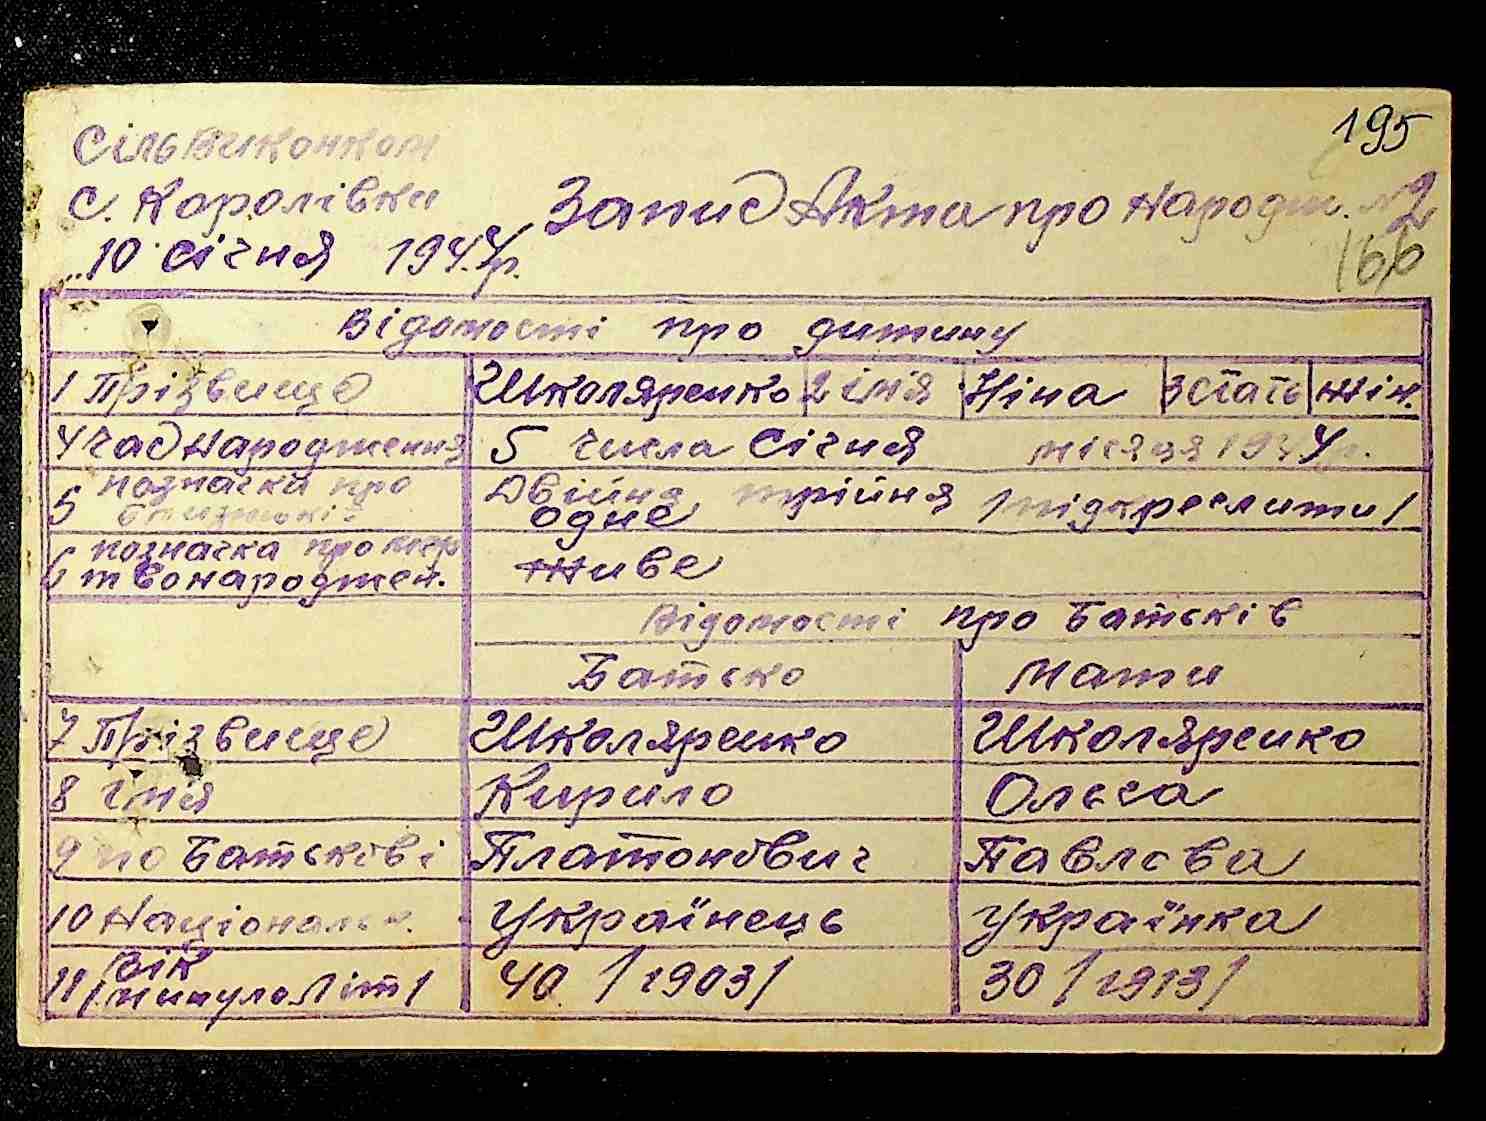 195
Сільвиконком
с. Королівки
"10" січня 1944 р.
Запис Акта про Народж. №2
166
Відомості про дитину
1 Прізвище Школяренко 2 імя Ніна 3 стать жін.
4 Час Народження 5 числа Січня місяця 1944 р.
5 позначка про близнюків Двійня, трійня /підкреслити/
одне
6 позначка про мер
твонароджен. живе
Відомості про Батьків
Батько Мати
7 Прізвище Школяренко Школяренко
8 Імя Кирило Ольга
9 по Батькові Платонович Павлова
10 Національн. Українець Українка
11 Вік
/минуло літ/ 40 /1903/ 30 /1913/